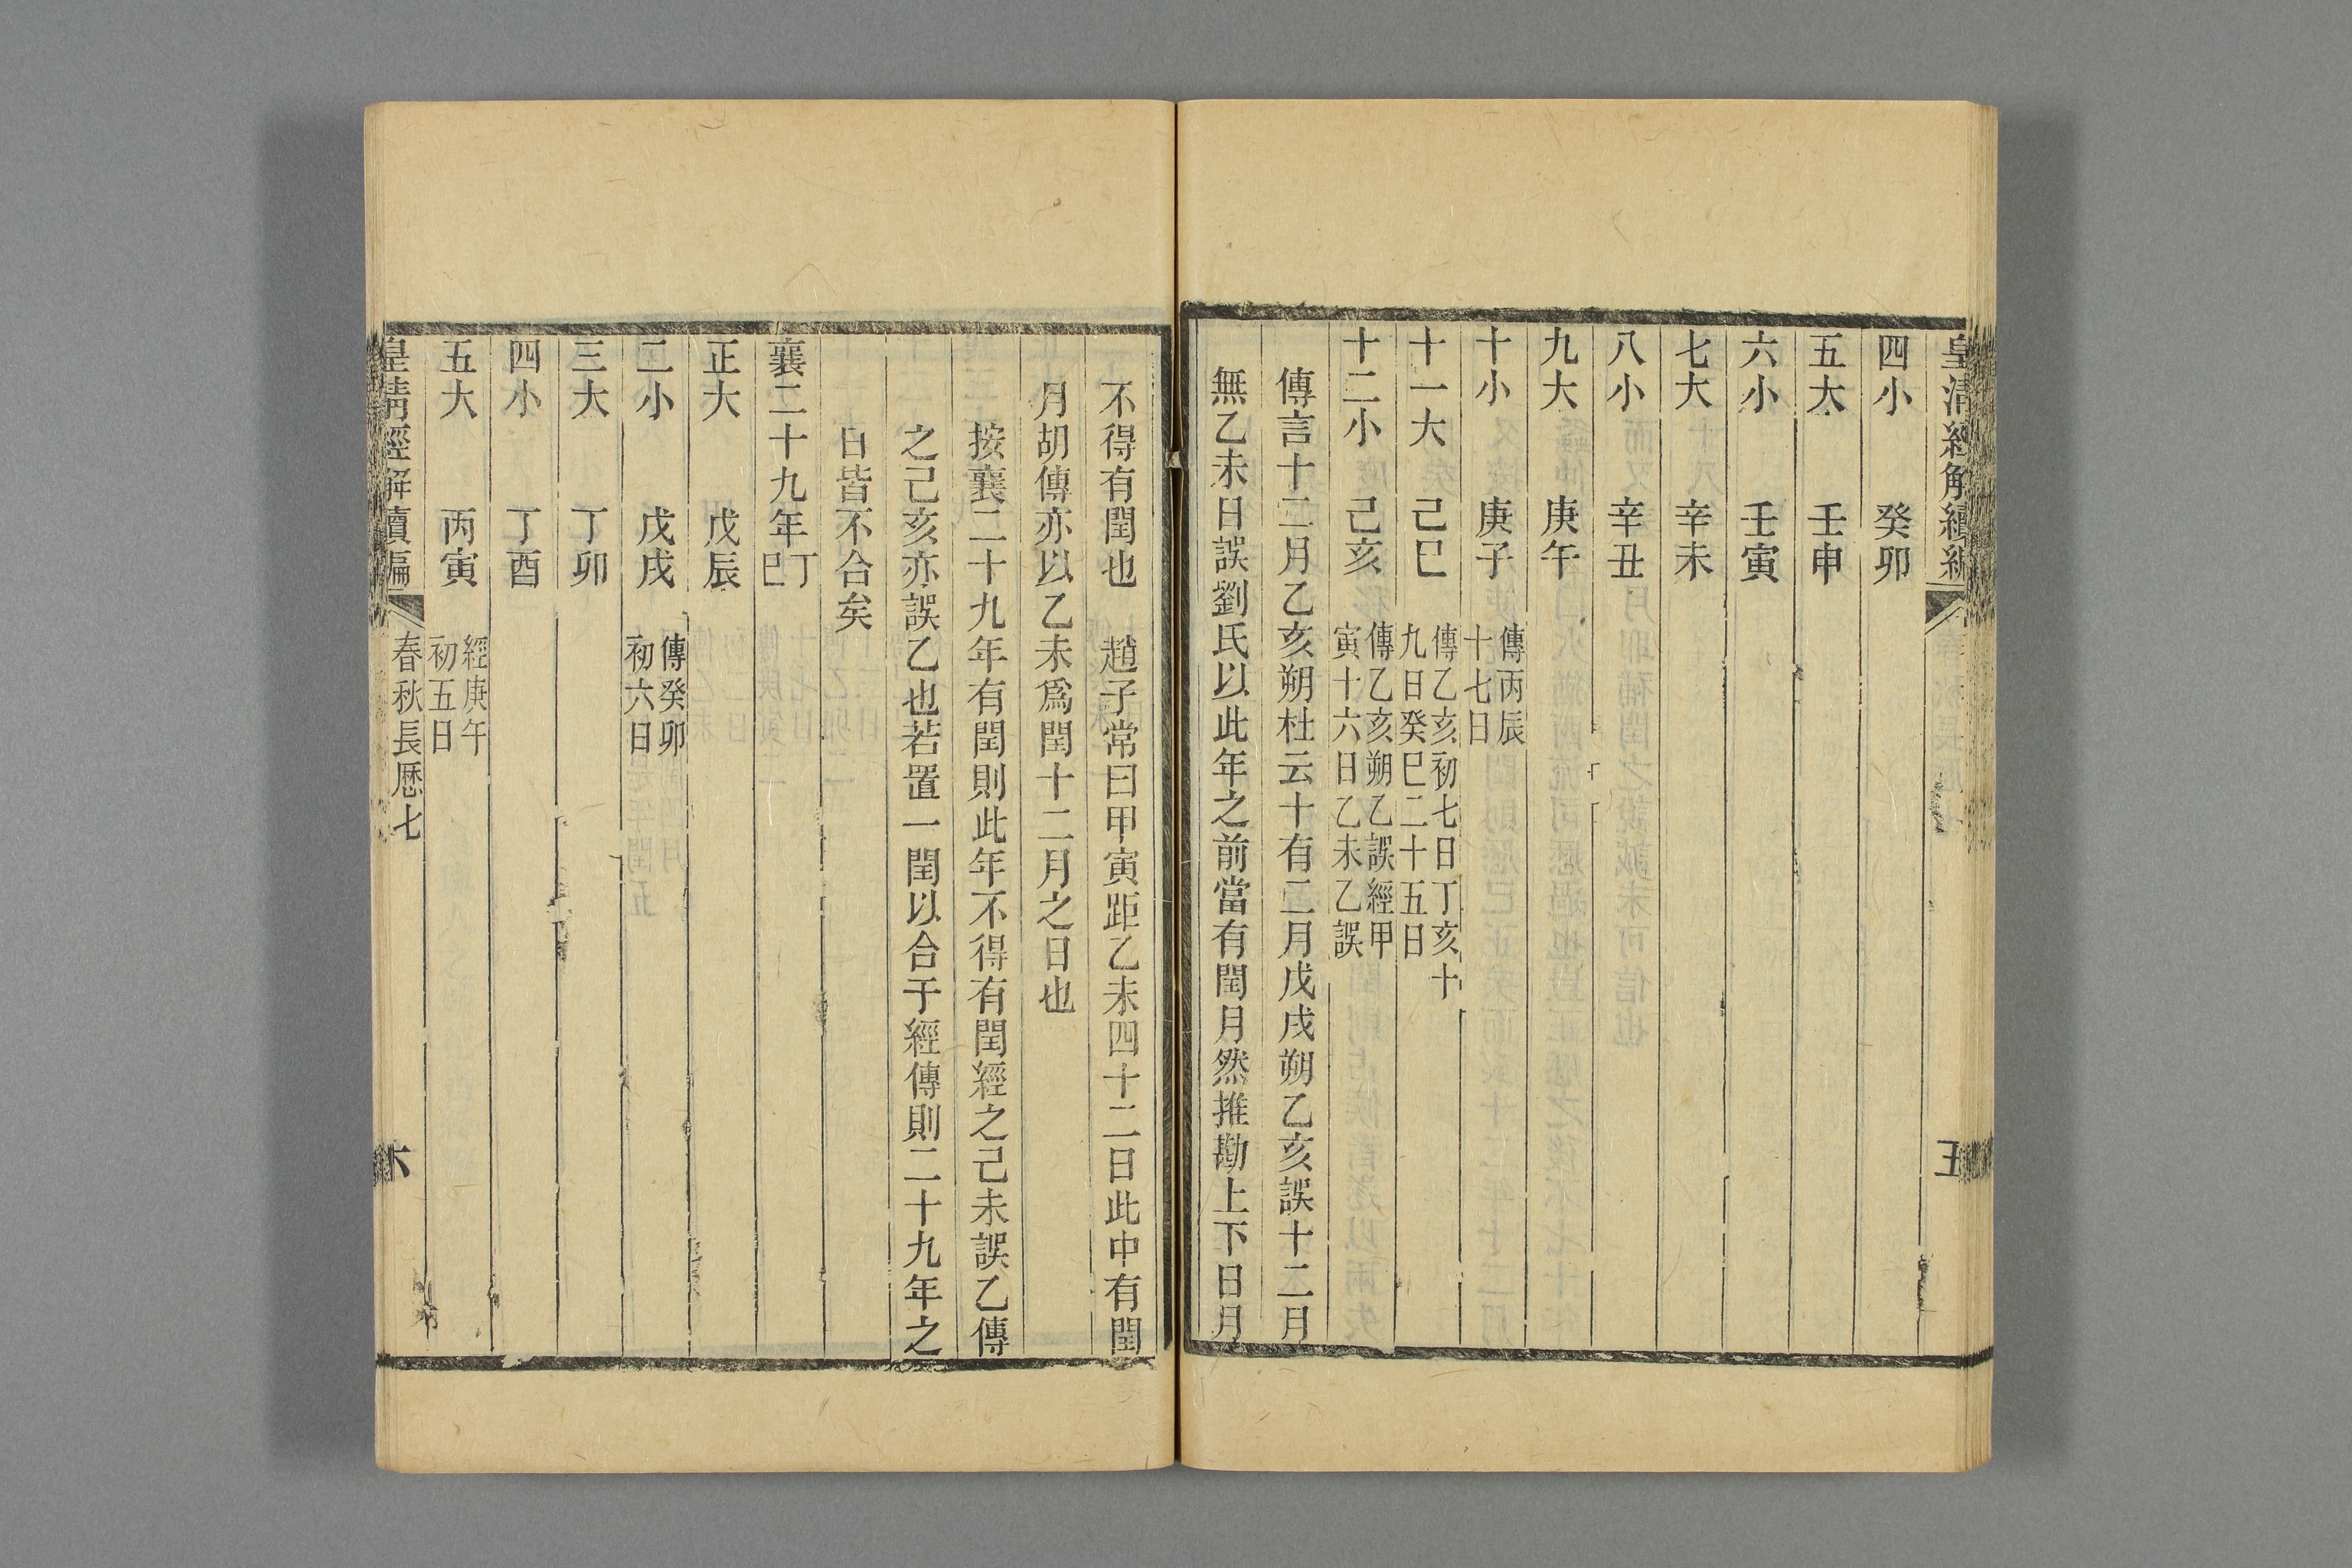 皇清經解續編
五
四小 癸卯
五大 壬申
六小 壬寅
七大 辛未
八小 辛丑
九大 庚午
十小 庚子 傳丙辰
十七日
十一大 己巳 傳乙亥初七日丁亥十
九日癸巳二十五日
十二小 己亥 傳乙亥朔乙誤經甲
寅十六日乙未乙誤
傳言十二月乙亥朔杜云十有二月戊戌朔乙亥誤十二月
無乙未日誤劉氏以此年之前當有閏月然推勘上下日月
不得有閏也 趙子常曰甲寅距乙未四十二日此中有閏
月胡傳亦以乙未爲閏十二月之日也
按襄二十九年有閏則此年不得有閏經之己未誤乙傳
之己亥亦誤乙也若置一閏以合于經傳則二十九年之
日皆不合矣
襄二十九年丁
巳
正大 戊辰
二小 戊戌 傳癸卯
初六日
三大 丁卯
四小 丁酉
五大 丙寅 經庚午
初五日
皇清經解續編 春秋長厤七 六